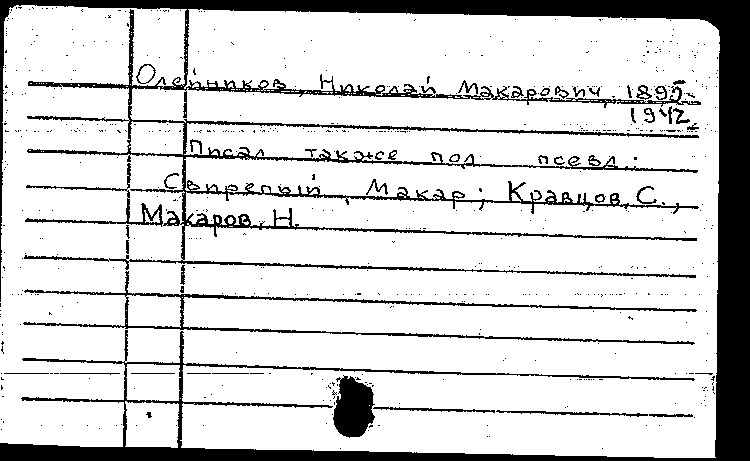 Олейников, Николай Макарович, 1895-
1942.
Писал также под псевд.:
Свирепый, Макар; Кравцов, С.,
Макаров, Н.